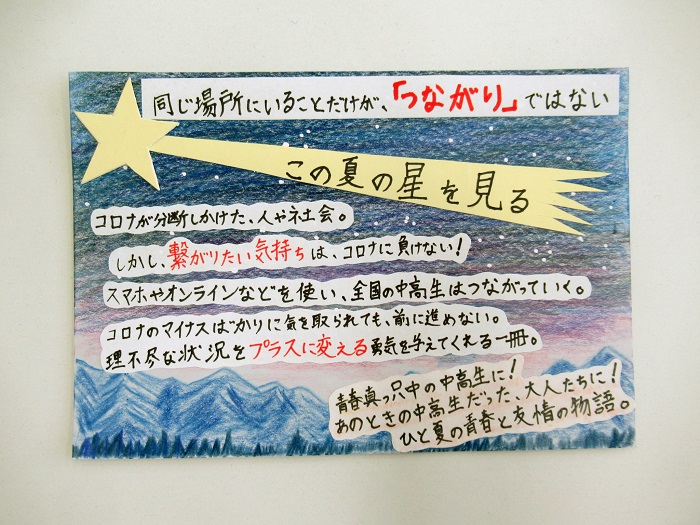 同じ場所にいることだけが、「つながり」ではない
この夏の星を見る
コロナが分断しかけた、人や社会。
しかし、繋がりたい気持ちは、コロナに負けない！
スマホやオンラインなどを使い、全国の中高生はつながっていく。
コロナのマイナスばかりに気を取られても、前に進めない。
理不尽な状況をプラスに変える勇気を与えてくれる一冊。
青春真っ只中の中高生に！
あのときの中高生だった、大人たちに！
ひと夏の青春と友情の物語。